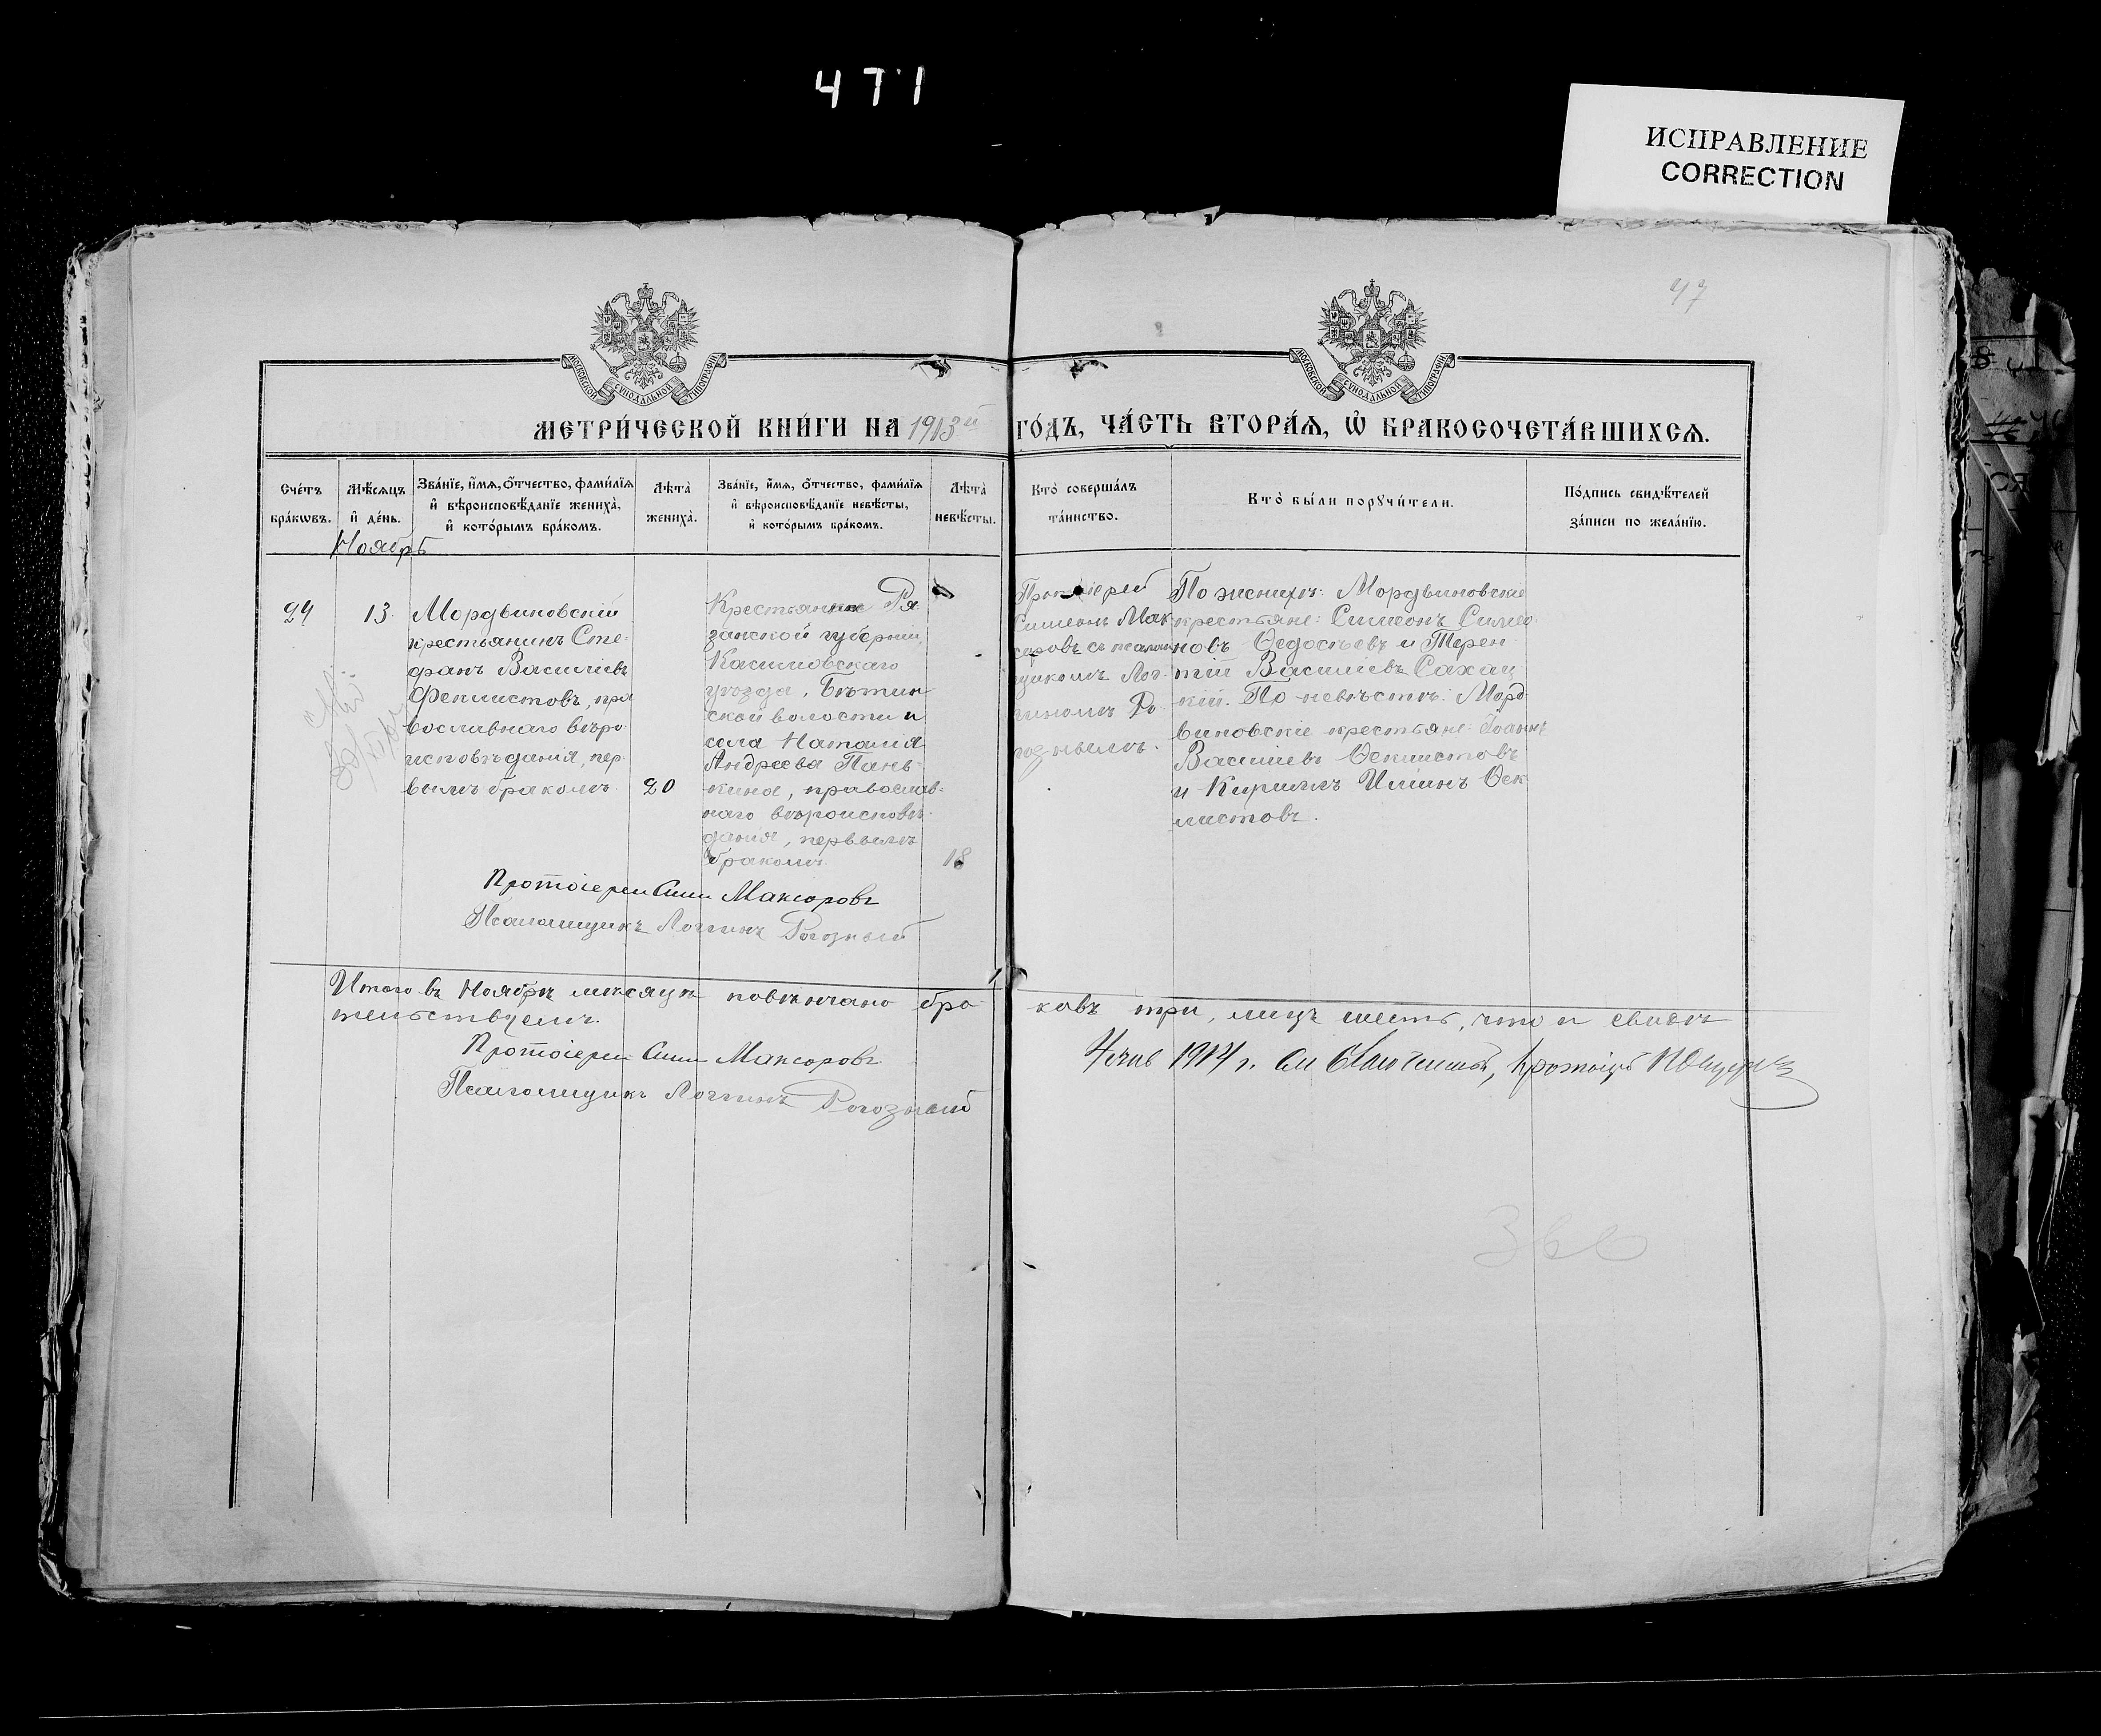 471
ИСПРАВЛЕНИЕ
CORRECTION
47
МОСКОВСКОЙ СѴНОДАЛЬНОЙ ТИПОГРАФІИ
МОСКОВСКОЙ СѴНОДАЛЬНОЙ ТИПОГРАФІИ
МЕТРИ́ЧЕСКОЙ КНИ́ГИ НА 1913й ГО́ДЪ, ЧА́СТЬ ВТОРА́Я, Ѽ БРАКОСОЧЕТА́ВШИХСЯ.
Сче́тъ
бра́кωвъ.
Мѣ́сяцъ
и҆ де́нь.
Зва́нїе, и҆́мя, ѻ҆́тчество, фами́лїя
и҆ вѣроисповѣ́данїе жениха̀,
и҆ кото́рымъ бра́комъ.
Лѣта̀
жениха̀.
Зва́нїе, и҆́мя, ѻ҆́тчество, фами́лїя
и҆ вѣроисповѣ́данїе невѣ́сты,
и҆ кото́рымъ бра́комъ.
Лѣта̀
невѣ́сты.
Кто̀ соверша́лъ
та́инство.
Кто̀ бы́ли порꙋчи́тели.
По́дпись свидѣ́телей
за́писи по жела́нїю.
Ноябрь
24
13.
Мордвиновскій
крестьянинъ Сте-
фанъ Василіевъ
Феклистовъ, пра
вославнаго вѣро-
исповѣданія, пер-
вымъ бракомъ.
20
Крестьянка Ря-
занской губерніи,
Касимовскаго
уѣзда, Бѣтин
ской волости и
села Наталія
Андреева Пань-
кина, православ-
наго вѣроисповѣ-
данія, первымъ
бракомъ.
18
Протоіерей
Симеонъ Мак-
соровъ съ псалом
щикомъ Лог-
гиномъ Ро-
гознымъ.
По женихѣ: Мордвиновскіе
крестьяне: Симеонъ Симео-
новъ Ѳедосѣевъ и Терен-
тій Василіевъ Сахац
кій. По невѣстѣ: Морд-
виновскіе крестьяне: Іоаннъ
Василіевъ Ѳеклистовъ
и Кириллъ Иліинъ Ѳек
листовъ.
Протоіерей Сим Максоровъ
Псаломщикъ Логгинъ Рогозный
Итого въ Ноябрѣ мѣсяцѣ повѣнчано бра-ковъ три, лицъ шесть, что и свидѣ
тельствуемъ.
Протоіерей Сим Максоровъ
Псаломщикъ Логгинъ Рогозный
1914 г.